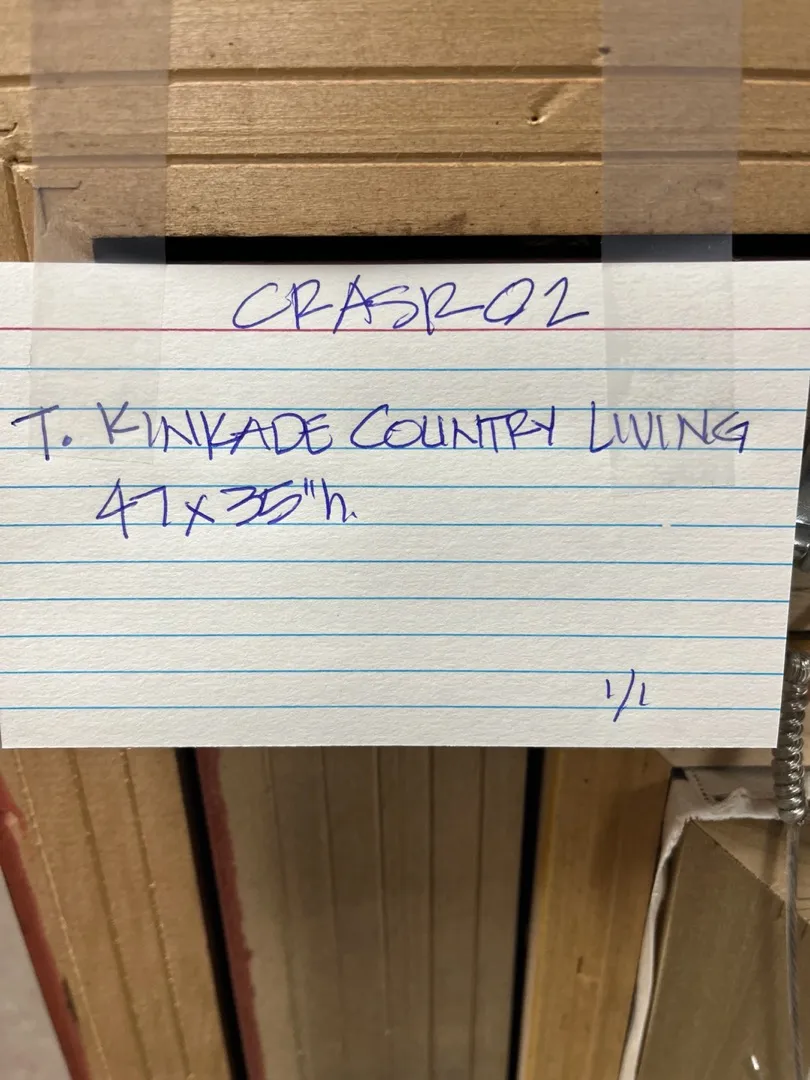 CRASR02
T. KINKADE COUNTRY LIVING
47x35"h.
1/1